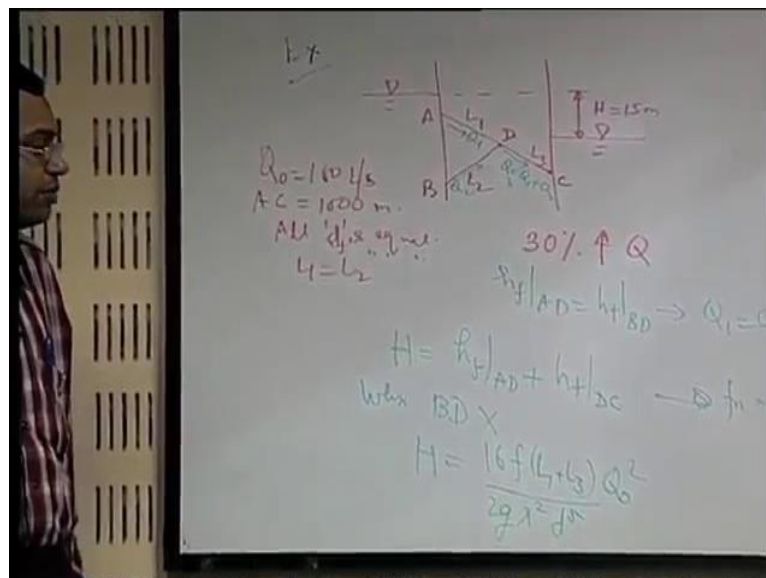 Ex
A
L₁
→Q₁
D
H = 15m
B
L₂
L₃
C
Q₀ = 160 L/s
AC = 1000 m.
All 'd' s equal.
L₁ = L₂
30% ↑ Q
h_f|_AD = h_f|_BD → Q₁ =
H = h_f|_AD + h_f|_DC →
When BD X
H = 16f(L₁+L₃) Q₀²
2gπ²d⁵